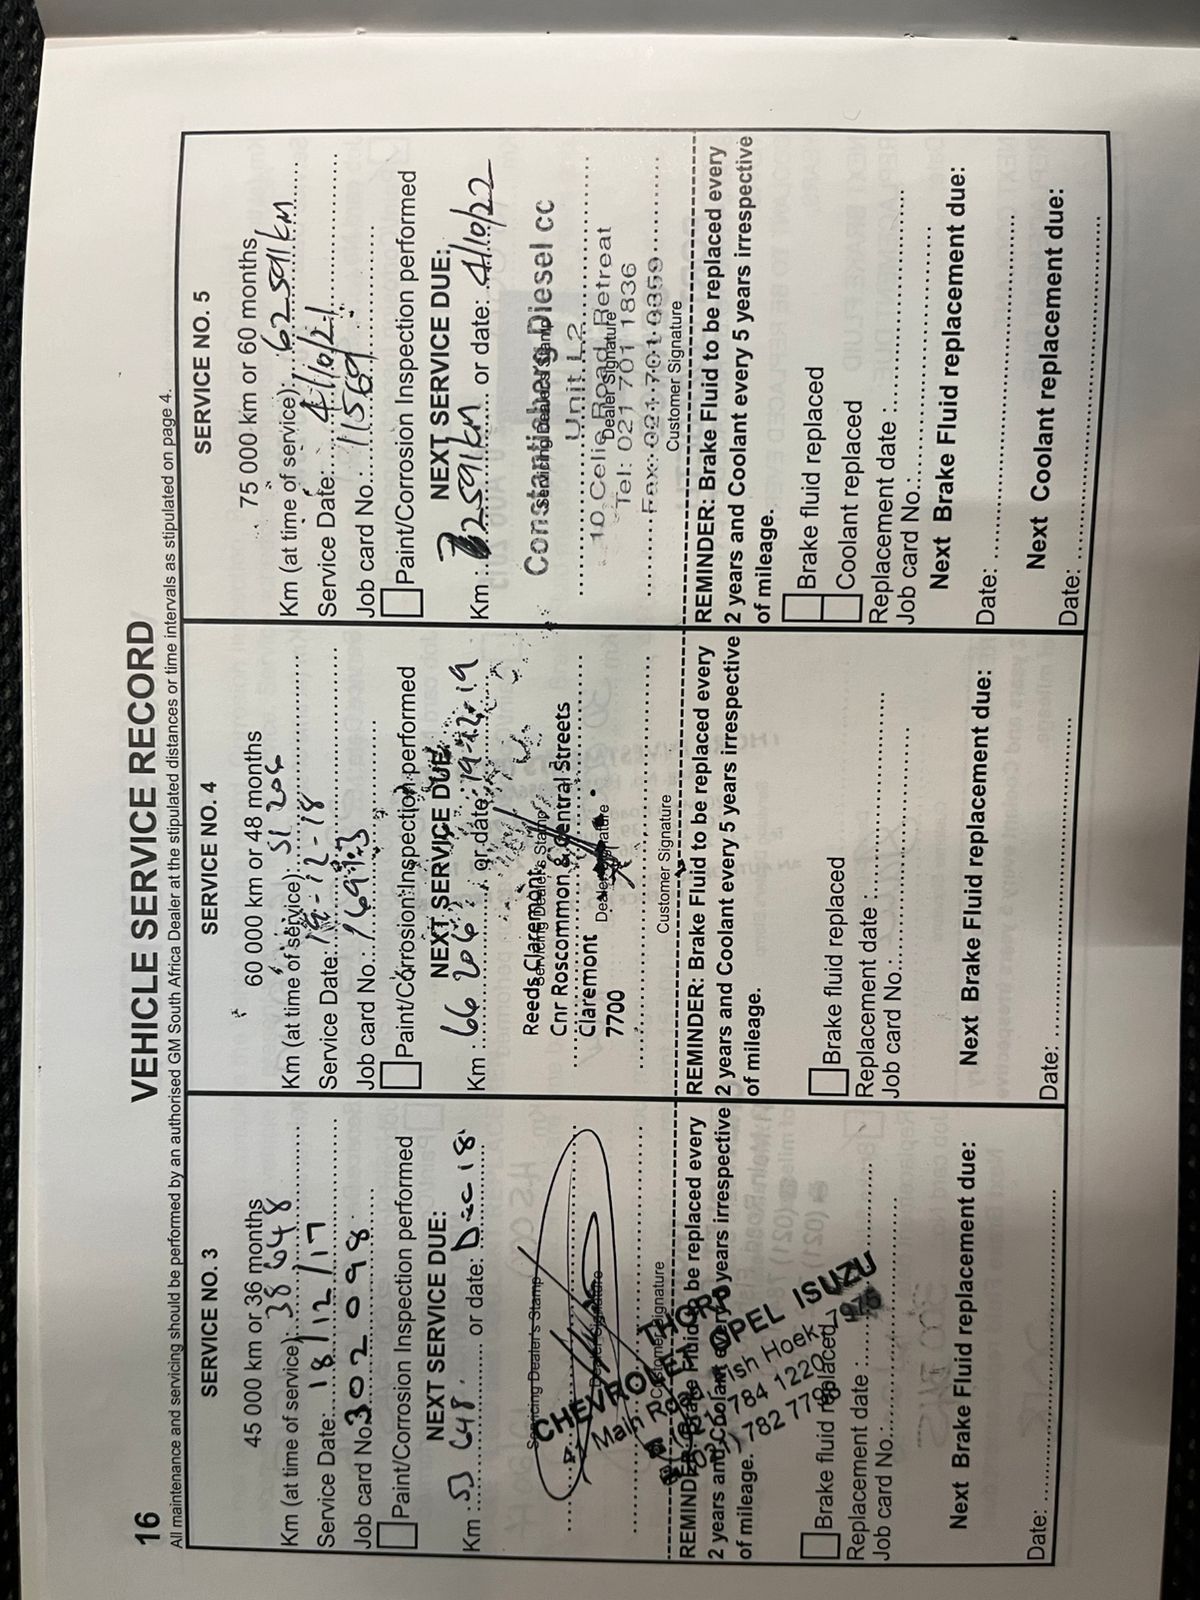 16
VEHICLE SERVICE RECORD
All maintenance and servicing should be performed by an authorised GM South Africa Dealer at the stipulated distances or time intervals as stipulated on page 4.
SERVICE NO. 3
45 000 km or 36 months
Km (at time of service): 38 648
Service Date: 18/12/17
Job card No. 302098
Paint/Corrosion Inspection performed
NEXT SERVICE DUE:
Km : 53 648 or date: Dec 18
Servicing Dealer's Stamp
Dealer Signature
Customer Signature
THORP
CHEVROLET OPEL ISUZU
Main Road Fish Hoek
784 1220
REMINDER: Brake Fluid to be replaced every
2 years and Coolant every 5 years irrespective
of mileage.
Brake fluid replaced
Replacement date :
Job card No.:
Next Brake Fluid replacement due:
Date:
SERVICE NO. 4
60 000 km or 48 months
Km (at time of service): 51 206
Service Date: 19-12-18
Job card No.:
Paint/Corrosion Inspection performed
NEXT SERVICE DUE
Km : 66 206 or date: 19-12-19
Servicing Dealer's Stamp
Reeds Claremont
Cnr Roscommon & Central Streets
Claremont
7700
Dealer Signature
Customer Signature
REMINDER: Brake Fluid to be replaced every
2 years and Coolant every 5 years irrespective
of mileage.
Brake fluid replaced
Replacement date :
Job card No.:
Next Brake Fluid replacement due:
Date:
SERVICE NO. 5
75 000 km or 60 months
Km (at time of service): 62591km
Service Date: 4/10/21
Job card No.: 11569
Paint/Corrosion Inspection performed
NEXT SERVICE DUE:
Km : 72591km or date: 4/10/22
Servicing Dealer's Stamp
Constantiaberg Diesel cc
Unit L2
10 Celie Road Retreat
Dealer Signature
Tel: 021 701 1836
Fax: 021 701 0359
Customer Signature
REMINDER: Brake Fluid to be replaced every
2 years and Coolant every 5 years irrespective
of mileage.
Brake fluid replaced
Coolant replaced
Replacement date :
Job card No.:
Next Brake Fluid replacement due:
Date:
Next Coolant replacement due:
Date: